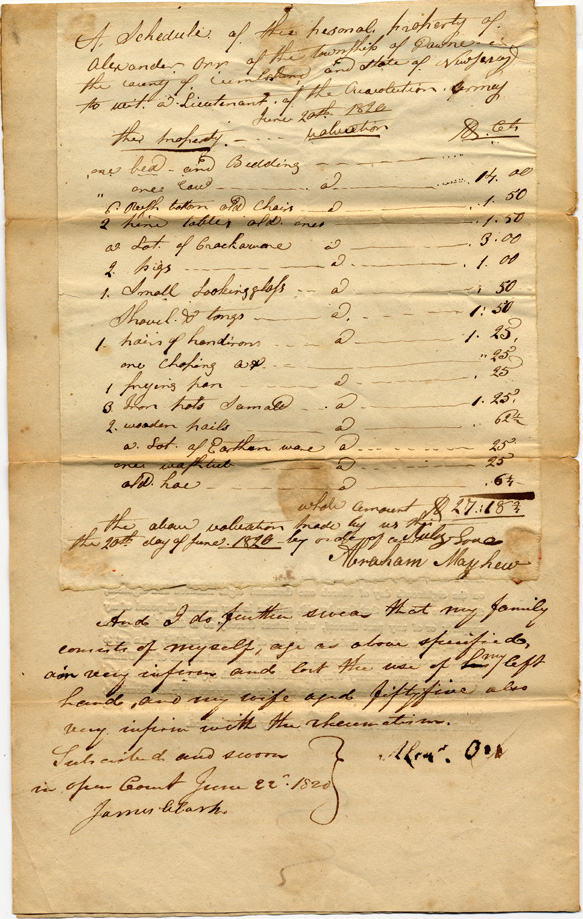 A Schedule of the pesonal property of
Alexander Orr of the township of Downe in
the county of Cumberland and State of New Jersey
to wit. a Lieutenant of the Revolution Army
June 20th 1820
the Property. valuation $ Cts
one bed and Bidding
" one Cow a 14. 00
6. Rush bottom old Chairs a 1. 50
2 pine tables old ones 1. 50
a Lot of Crackaware a 3. 00
2. pigs a 1. 00
1. Small Lookinglass a 50
Shovel & tongs a 1: 50
1- pairs of handirons a 1. 25
one Choping ax " 25
1 frying pan a 25
3 Iron pots Small a 1. 25
2. wooden pails a 62½
a Lot of Earthen ware a 25
one washtub a 25
old hoe a 6¼
whole amount $ 27:18¾
the above valuation made by us this
the 20th day of June 1820 by order of
Abraham Mayhew
And I do further swear that my family
consists of myself, age as above specified,
am very infirm and lost the use of my left
hand, and my wife aged fiftyfive also
very infirm with the rheumatism.
Subscribed and sworn Alexr. Orr
in open Court June 22d. 1820
James Clark
5